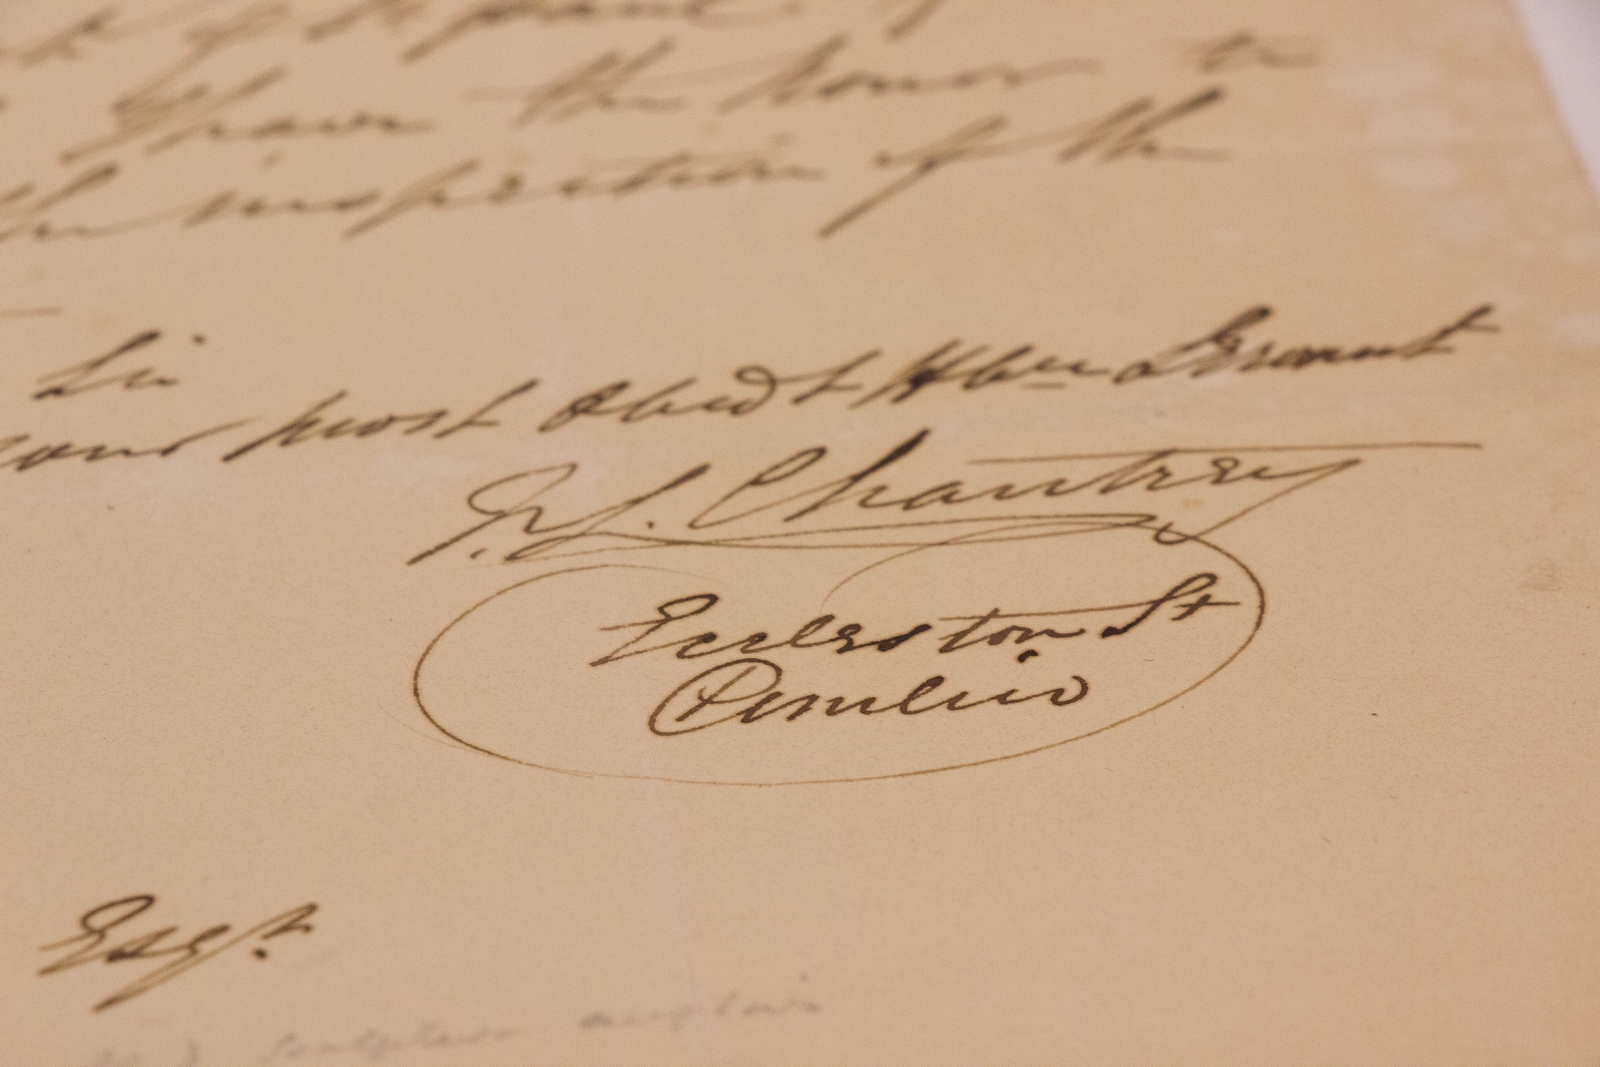 I have the honor to
the inspection of the
Sir
your most Obedt Hbm Servant
F. L. Chantrey
Eccleston St
Pimlico
Esqr.
sculpteur anglais